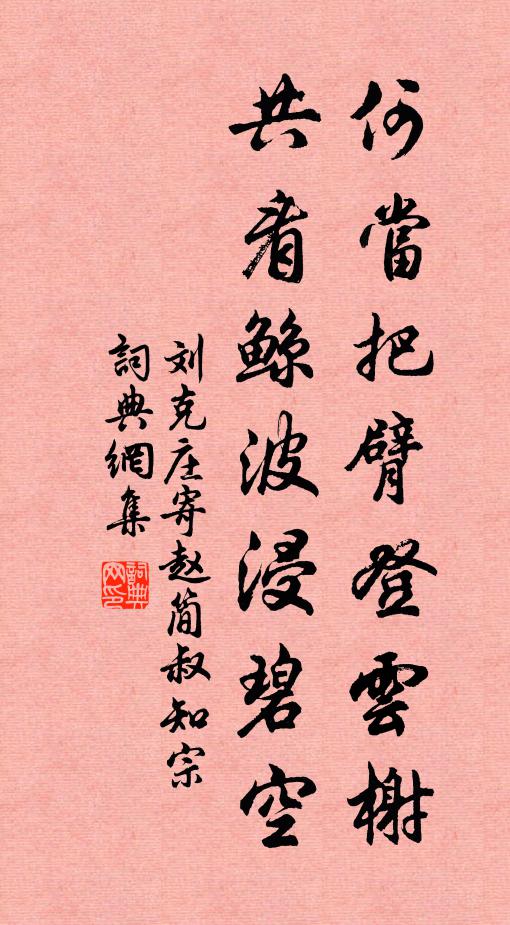 何當把臂登雲榭
共看鲸波浸碧空
刘克庄寄赵简叔知宗
詞典網集
詞典
网印